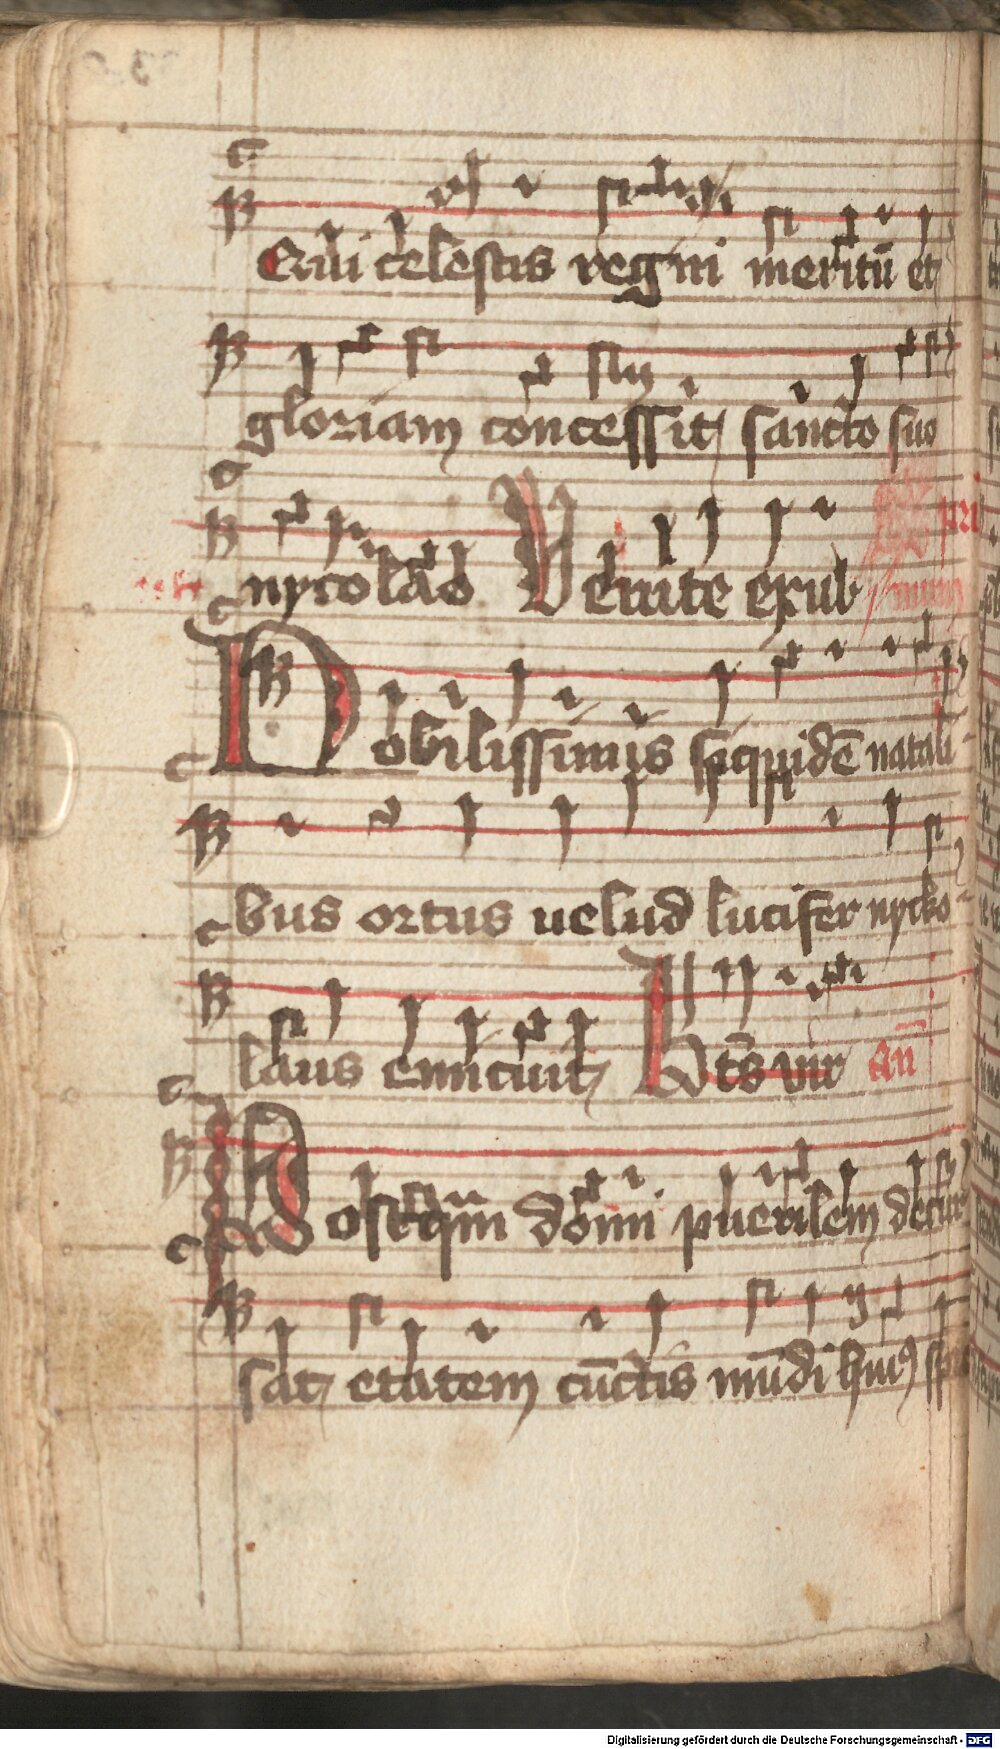 Qui celestis regni meritū et
gloriam concessit sancto suo
nycolao Venite exub
Nobilissimis siquidē natali
bus ortus uelud lucifer nycko
laus emicuit Bt̄s vir an̄
Postqm̄ domi puerilem decur
sat etatem cūctis mūdi huiꝰ
Digitalisierung gefördert durch die Deutsche Forschungsgemeinschaft - DFG